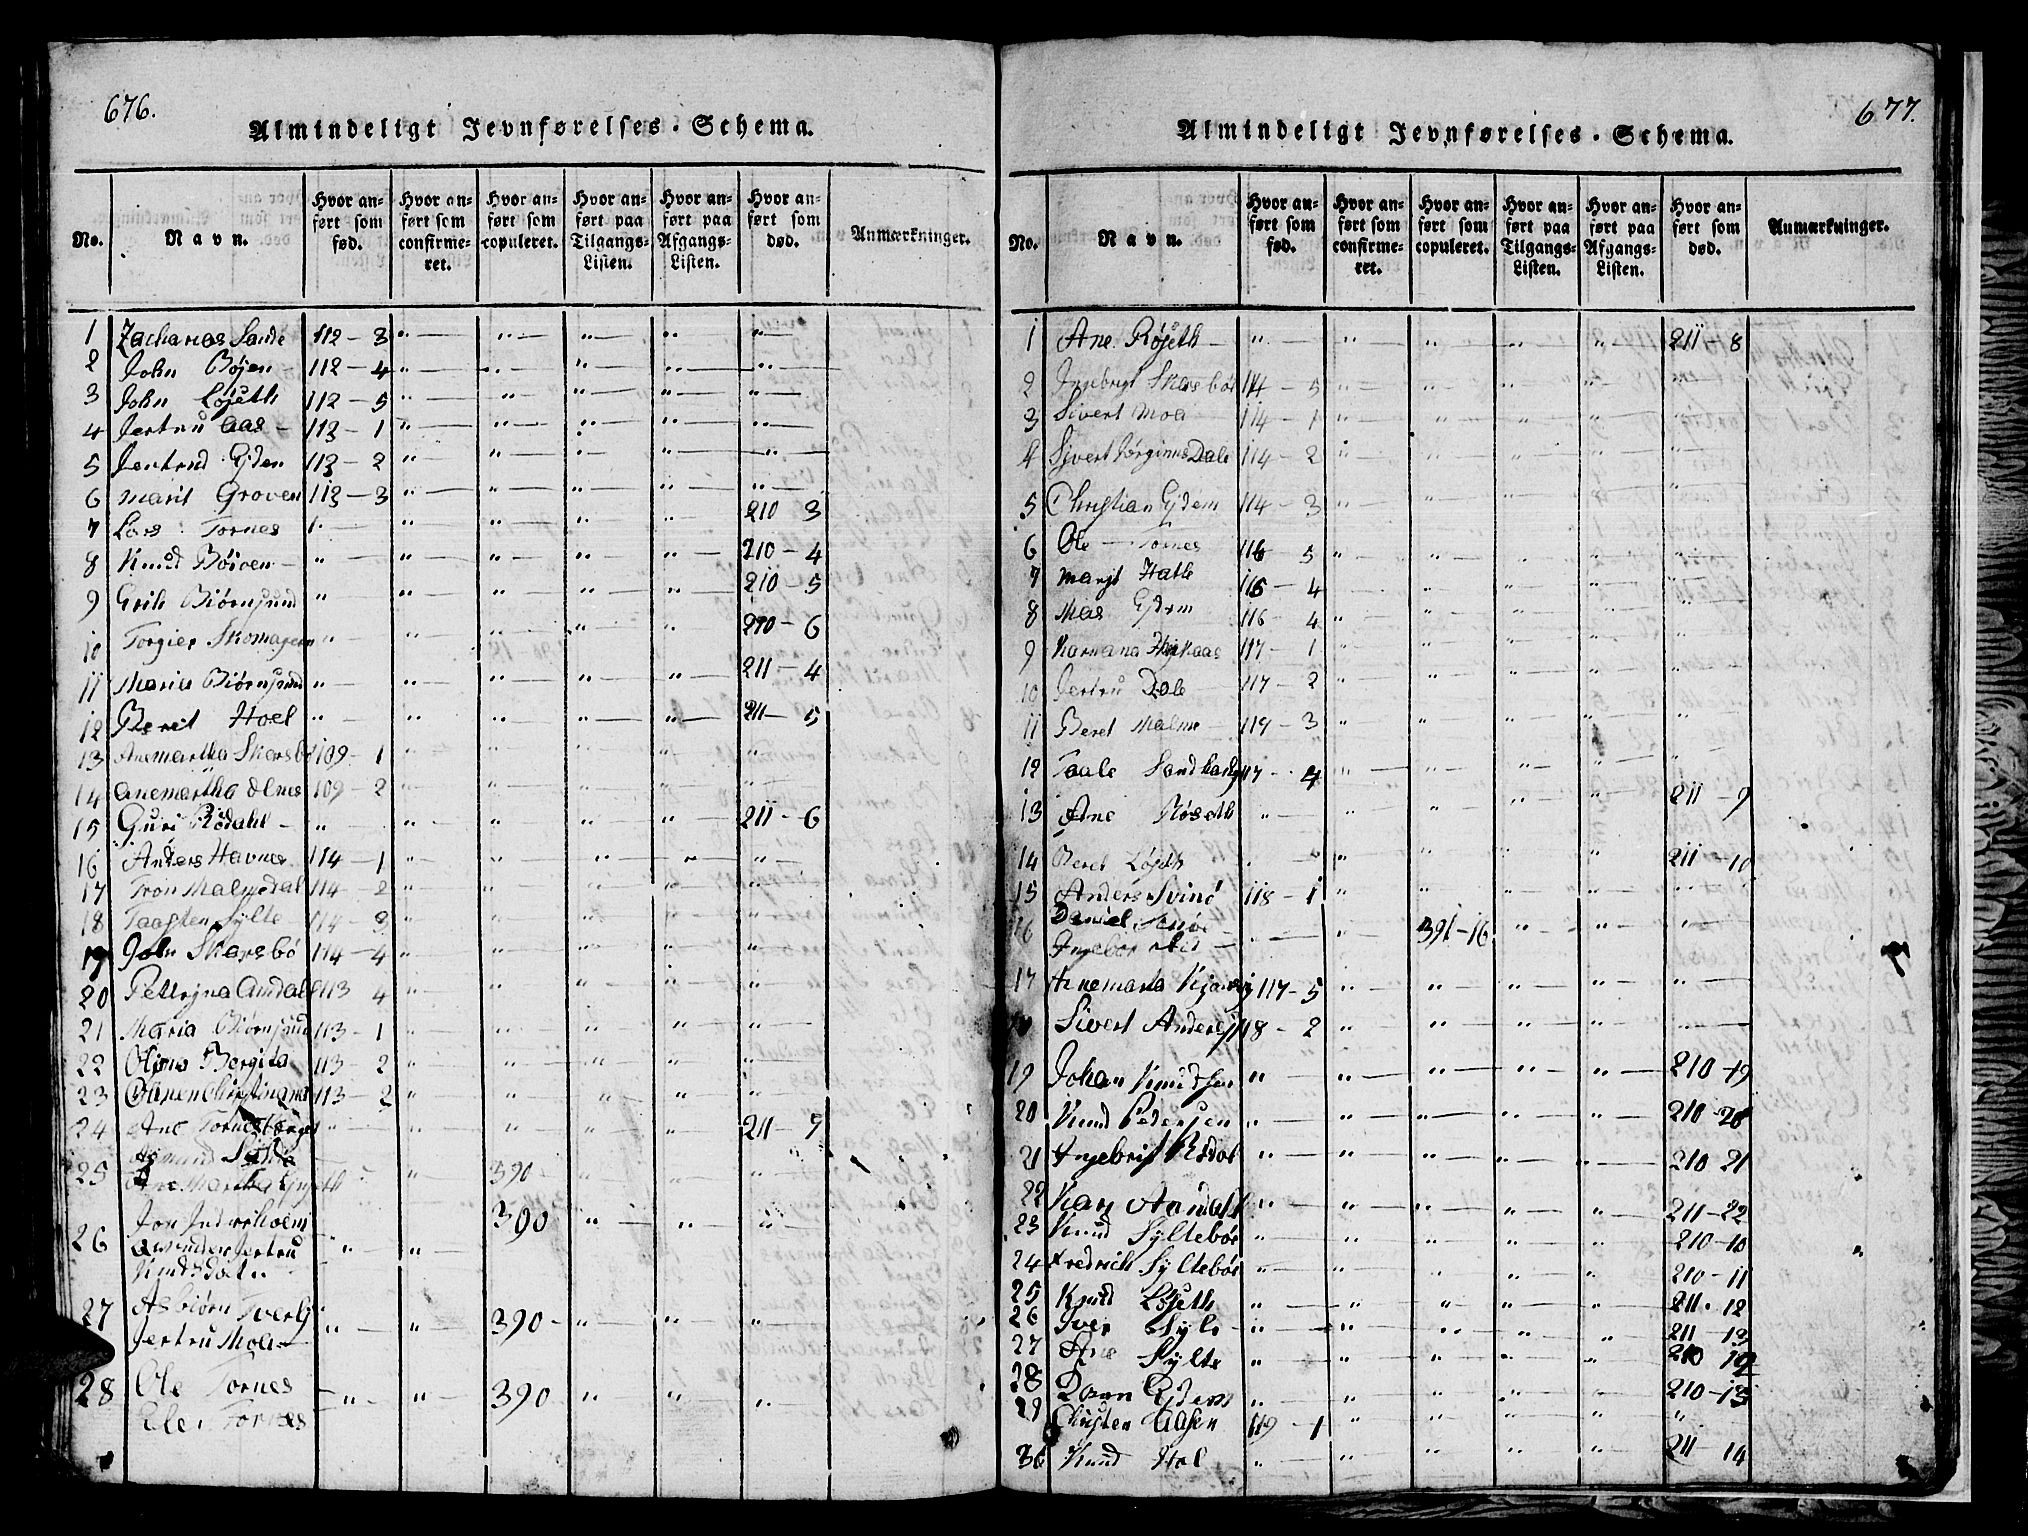 676.
Almindeligt Jevnførelses-Schema.
No. Navn. Hvor anført som fød. Hvor anført som confirmeret. Hvor anført som copuleret. Hvor anført paa Tilgangs-Listen. Hvor anført paa Afgangs-Listen. Hvor anført som død. Anmærkninger.
1 Zacharias Sande 112 - 3 " " " " "
2 John Bøjen 112 - 4 " " " " "
3 John Løseth 112 - 5 " " " " "
4 Jertru Aas 113 - 1 " " " " "
5 Jertrud Ejden 113 - 2 " " " " "
6 Marit Groven 113 - 3 " " " " "
7 Lars Tornes " " " " " 210 3
8 Knud Bøiven " " " " " 210 - 4
9 Erik Biørnsund " " " " " 210 - 5
10 Torgier Skomager " " " " " 210 - 6
11 Maria Biørnsund " " " " " 211 - 4
12 Berit Hoel " " " " " 211 - 5
13 Anemartha Skarsbø 109 - 1 " " " " "
14 Anemartha Olnes 109 - 2 " " " " "
15 Guri Rødahl " " " " " 211 - 6
16 Anders Havnes 114 - 1 " " " " "
17 Tron Malmedal 114 - 2 " " " " "
18 Taasten Sylte 114 3 " " " " "
19 John Skarsbø 114 - 4 " " " " "
20 Pettrina Amdal 113 4 " " " " "
21 Maria Biørnsund 113 - 1 " " " " "
22 Oline Bergita 113 - 2 " " " " "
23 113 - 2 " " " " "
24 Ane " " " " " 211 - 7
25 Ane Martha 390 - " " "
26 Jon Jertru Knudsdat. " " 390 " " "
27 Asbiørn Jertru Moe " " 390 - " " "
28 Ole Tornes " " 390 " " "
Tornes
677.
Almindeligt Jevnførelses-Schema.
No. Navn. Hvor anført som fød. Hvor anført som confirmeret. Hvor anført som copuleret. Hvor anført paa Tilgangs-Listen. Hvor anført paa Afgangs-Listen. Hvor anført som død. Anmærkninger.
1 Ane Røseth " " " " " 211 - 8
2 Ingebrigt Skarsbø 114 - 5 " " " " "
3 Sivert Moa 114 - 1 " " " " "
4 Sivert Jørginus Dale 114 - 2 " " " " "
5 Christian Ejdem 114 - 3 " " " " "
6 Ole Tornes 116 5 " " " " "
7 Marjt Hatle 116 - 4 " " " " "
8 Mas Ejdem 116 - 4 " " " " "
9 117 - 1 " " " " "
10 Jertru Dale 117 - 2 " " " " "
11 Beret Malme 119 - 3 " " " " "
12 Taale 117 - 4 " " " " "
13 Ane Røseth " " " " " 211 - 9
14 Beret Løseth " " " " " 211 - 10
15 Anders Svinø 118 - 1 " " " " "
16 Daniel " " 391 - 16 " " "
17 Anemaria 117 - 5 " " " " "
Sivert Anders 118 - 2 " " " " "
19 Johan Knudsen " " " " " 210 - 19
20 Knud Pedersen " " " " " 210 - 20
21 Ingebrigt " " " " " 210 21
22 Kari Aandahl " " " " " 211 - 22
23 Knud Syltebøe " " " " " 210 - 10
24 Fredrich Syltebøe " " " " " 210 - 11
25 Knud Løseth " " " " " 211 - 12
26 Iver Sylte " " " " " 211 - 13
27 Ane Sylte " " " " " 210 12
28 Ejdem " " " " " 210 - 13
29 Christen Aasen 119 - 1 " " " " "
30 Knud Hol " " " " " 211 14